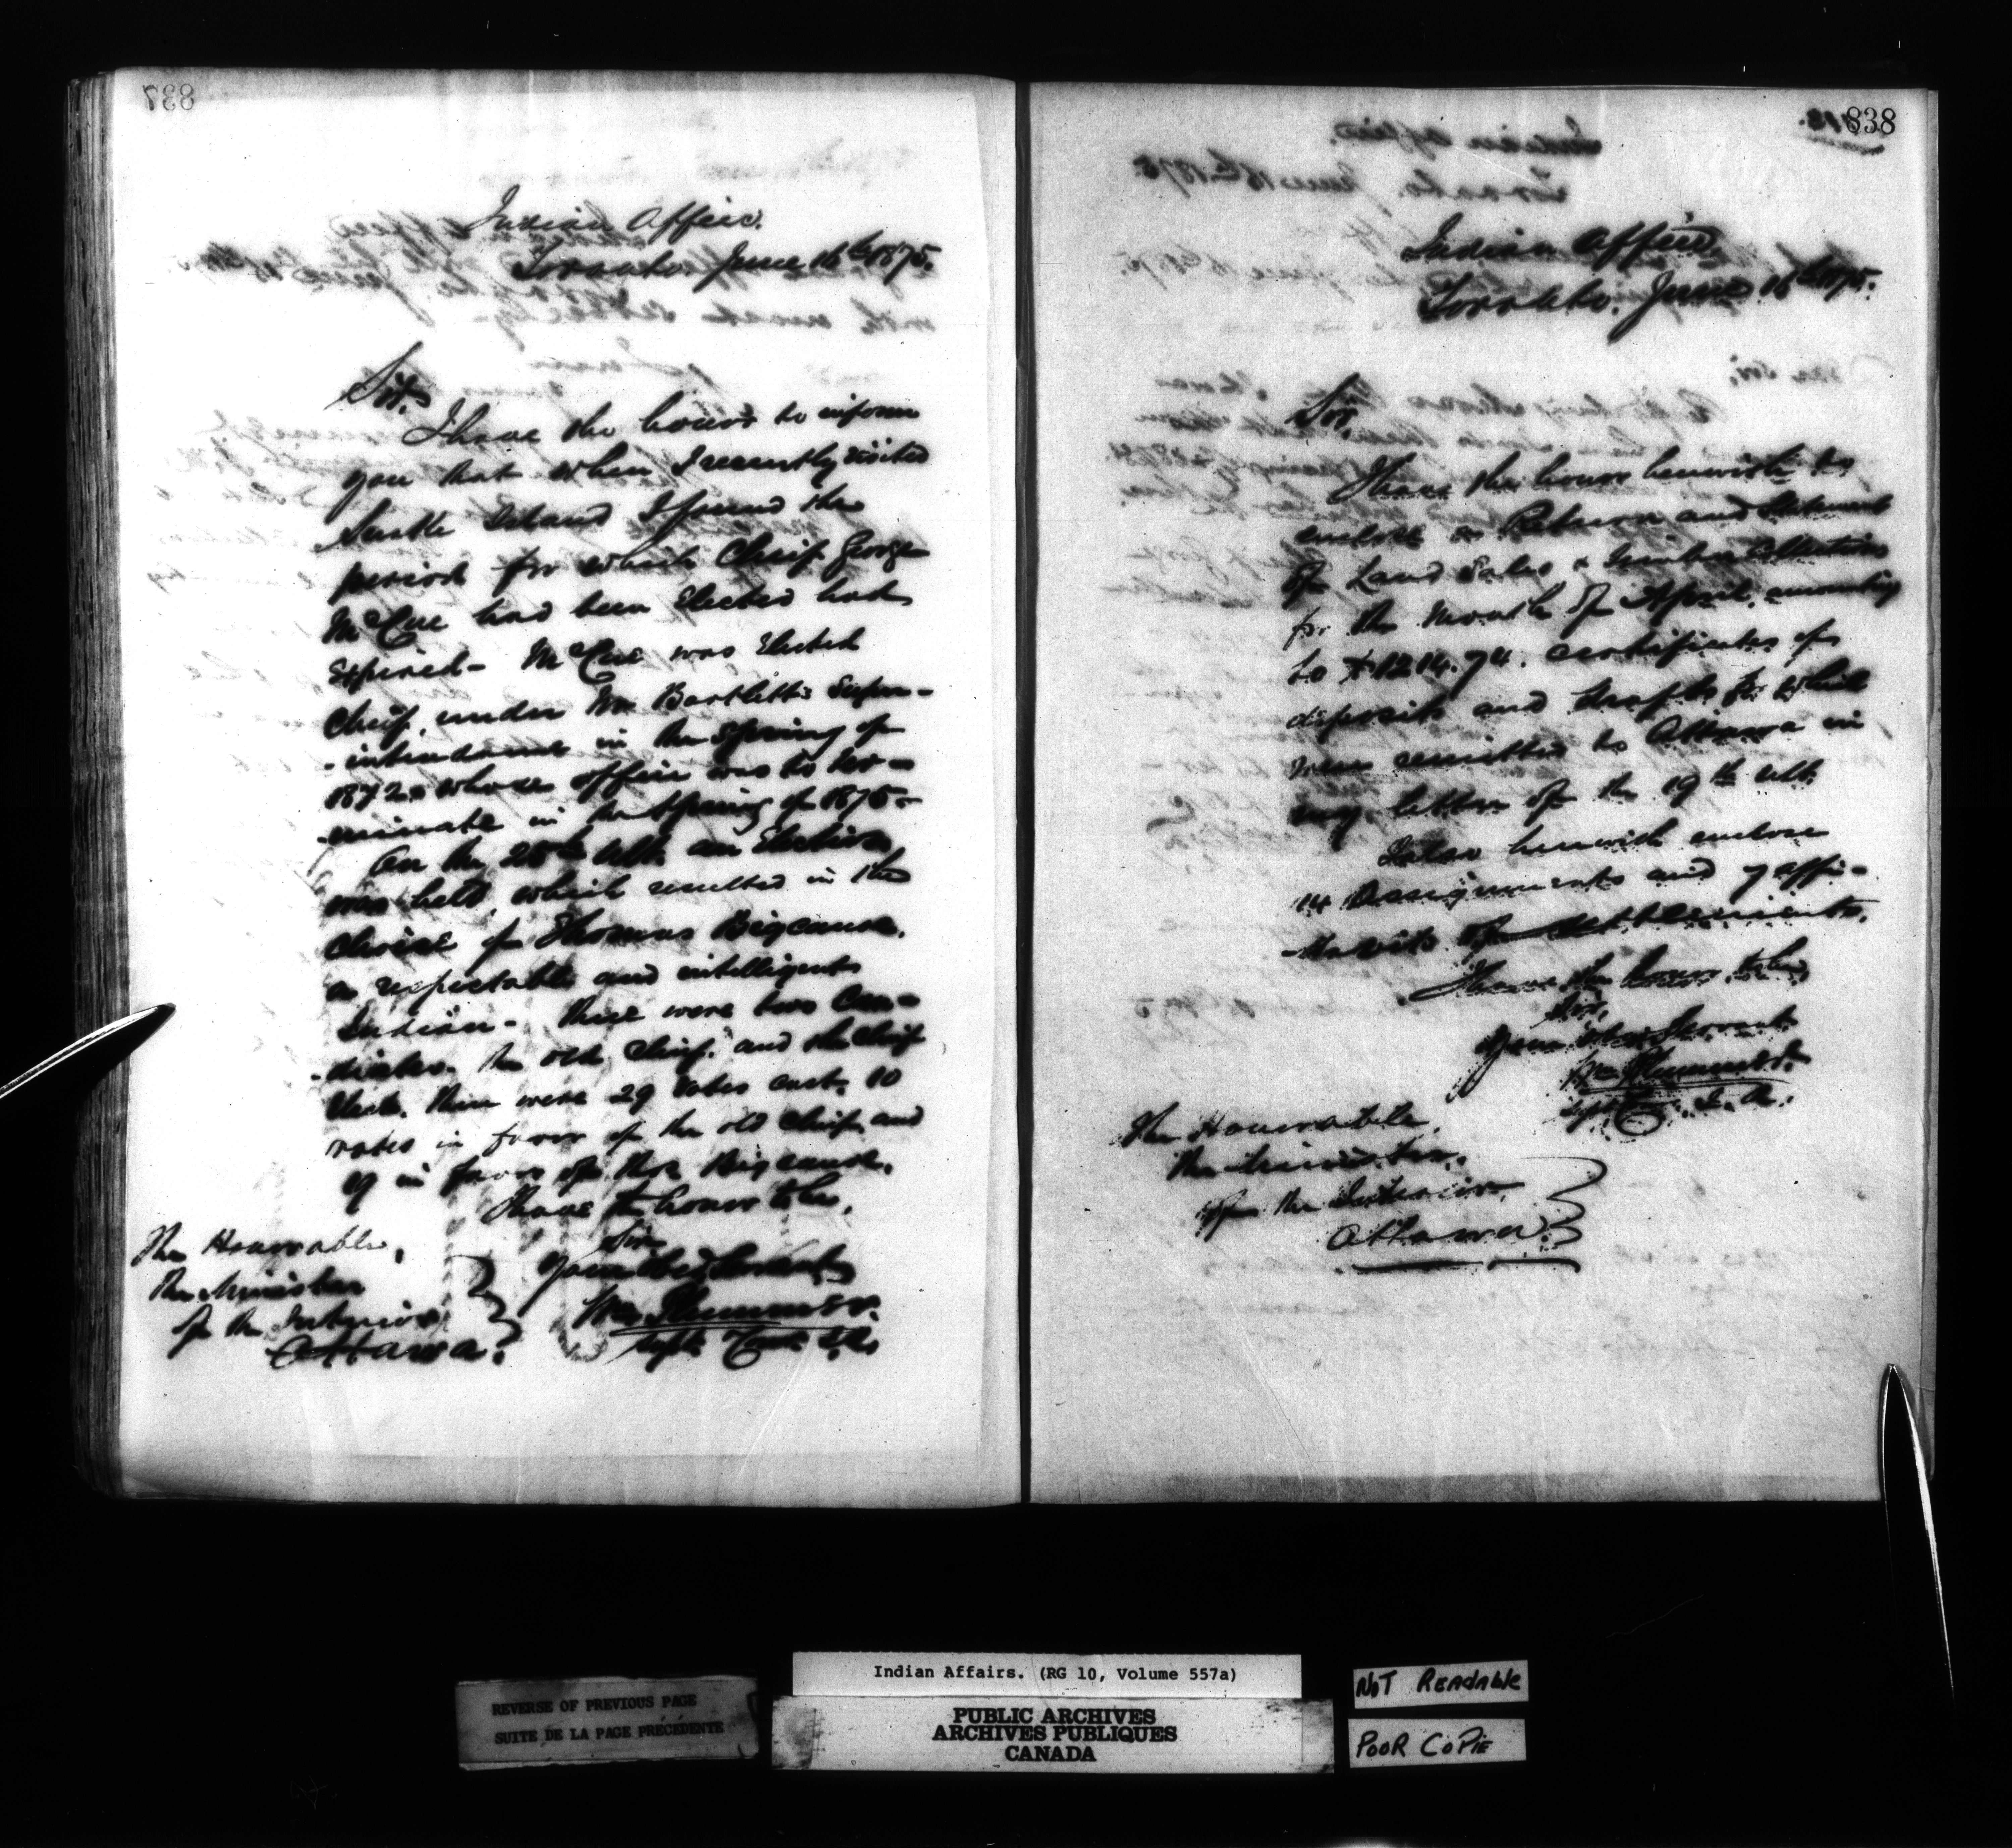 837
Indian Office.
Toronto June 16th 1875.
Sir,
I have the honor to inform
you that when I recently visited
Snake Island I found the
period for which Chief George
McCue had been Elected had
Expired - McCue was Elected
Chief, under Wm Bartlett's Super-
-intendence in the Spring of
1872 & whose office was to ter-
-minate in the Spring of 1875 -
On the 25th ulto an Election
was held, which resulted in the
choice of Thomas Bigcanoe,
a respectable and intelligent
Indian - There were two Can-
-didates, the old Chief, and the Chief
Elect. There were 29 votes cast, 10
votes in favor of the old Chief and
19 in favor of Thos Bigcanoe.
I have the honor to be,
Sir
Your Obed Servant
Wm Plummer.
Supt. Com I.A.
The Honorable,
The Minister
of the Interior
Ottawa.
838
Indian Office
Toronto. June 16th 1875.
Sir,
I have the honor herewith to
enclose a Return and Statement
of Land Sales & Timber Collections
for the Month of April, amounting
to $1214.74. certificates of
deposits and drafts for which
were remitted to Ottawa in
my letter of the 19th ult.
I also herewith enclose
14 Assignments and 7 affi-
-davits of settlements.
I have the honor to be,
Sir,
Your Obed Servant
Wm Plummer.
Supt Com. I. A.
The Honorable,
The Minister,
of the Interior,
Ottawa.
Indian Affairs. (RG 10, Volume 557a)
REVERSE OF PREVIOUS PAGE
SUITE DE LA PAGE PRÉCÉDENTE
PUBLIC ARCHIVES
ARCHIVES PUBLIQUES
CANADA
NOT READABLE
POOR COPIE